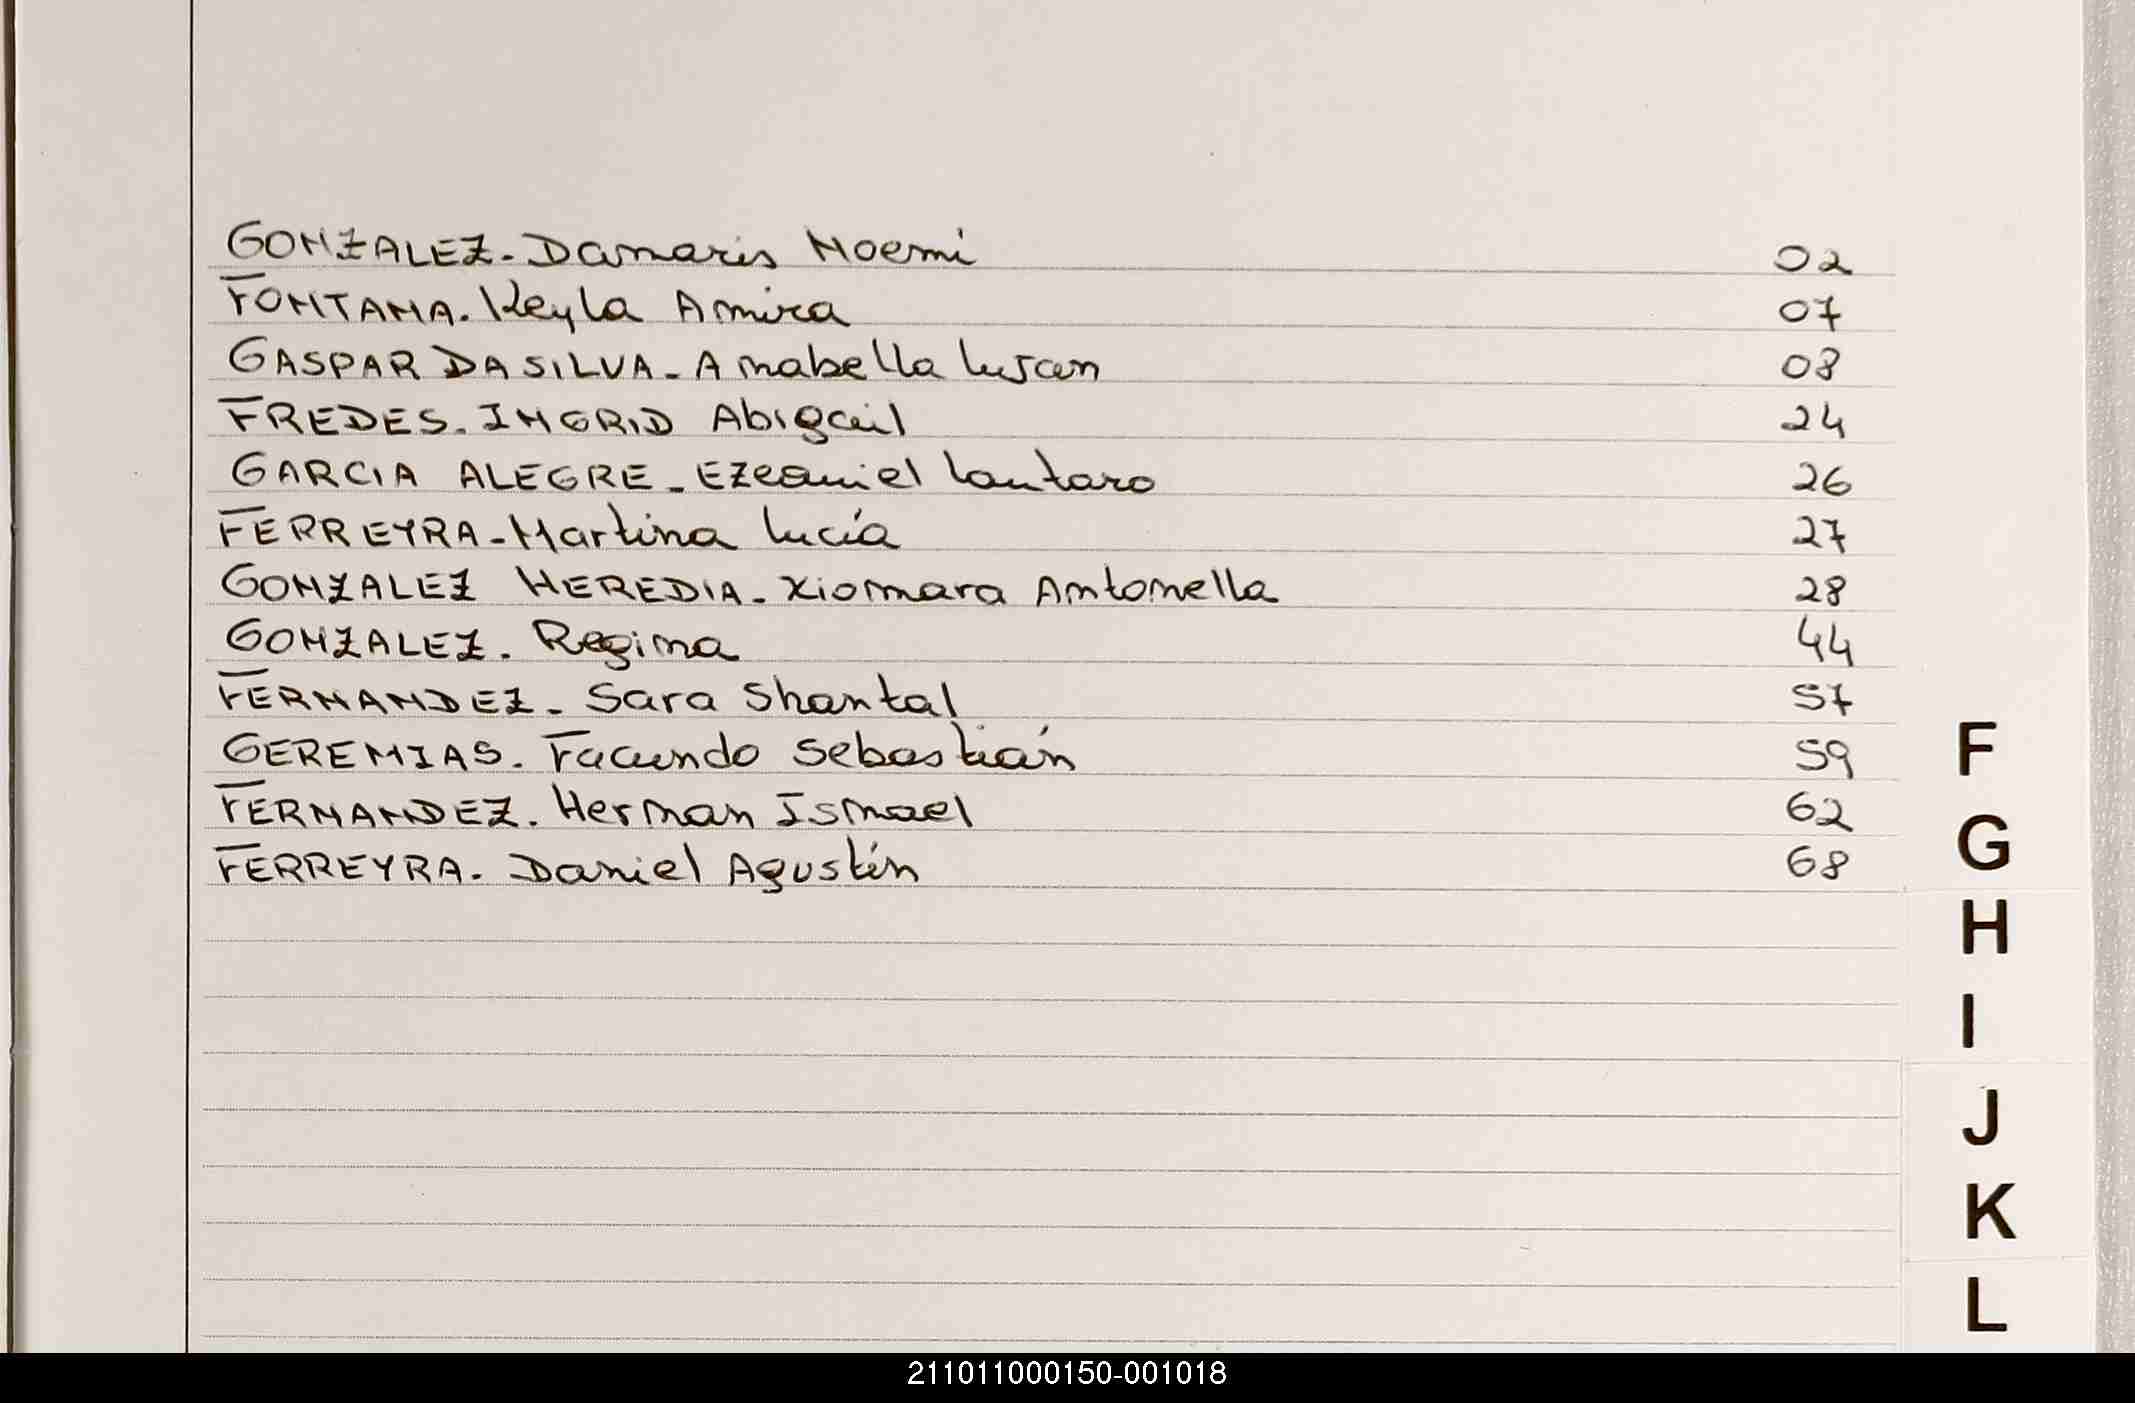 GONZALEZ. Damaris Noemi 02
FONTANA. Keyla Amira 07
GASPAR DA SILVA. Anabella Lujan 08
FREDES. INGRID Abigail 24
GARCIA ALEGRE. Ezequiel Lautaro 26
FERREYRA. Martina Lucía 27
GONZALEZ HEREDIA. Xiomara Antonella 28
GONZALEZ. Regina 44
FERNANDEZ. Sara Shantal 57
GEREMIAS. Facundo Sebastián 59
FERNANDEZ. Hernan Ismael 62
FERREYRA. Daniel Agustín 68
F
G
H
I
J
K
L
211011000150-001018